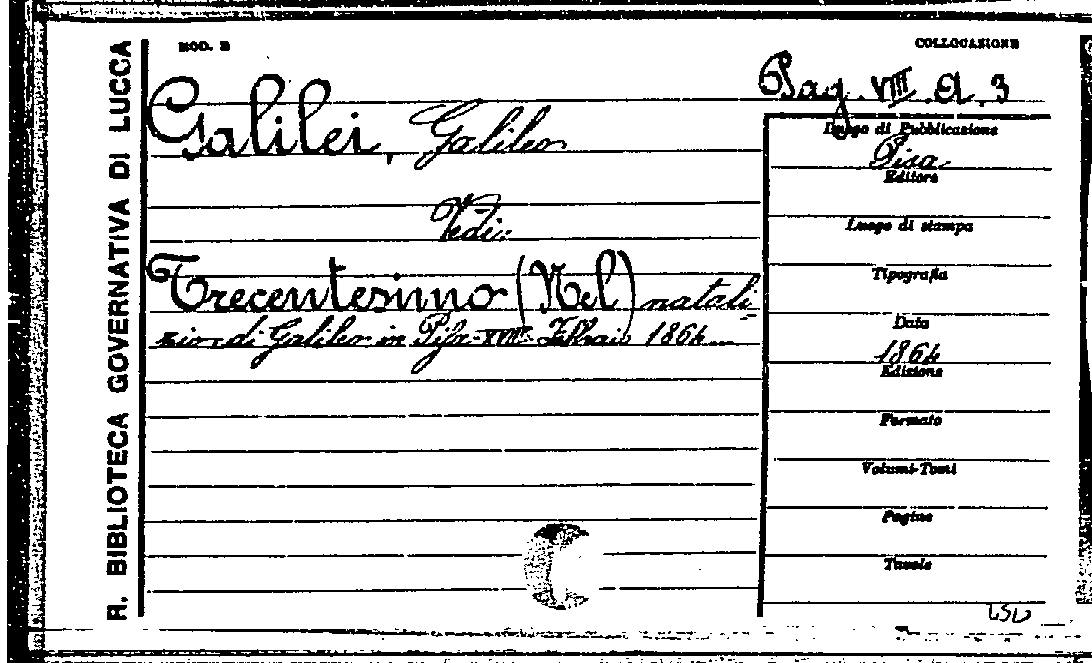 R. BIBLIOTECA GOVERNATIVA DI LUCCA
MOD. B
COLLOCAZIONE
Pag. VIII. A. 3
Galilei, Galileo
Luogo di Pubblicazione
Pisa
Editore
Vedi:
Luogo di stampa
Tipografia
Trecentesimo (Nel) natali-
zio di Galileo in Pisa XVIII Febbraio 1864
Data
1864
Edizione
Formato
Volumi-Tomi
Pagine
Tavole